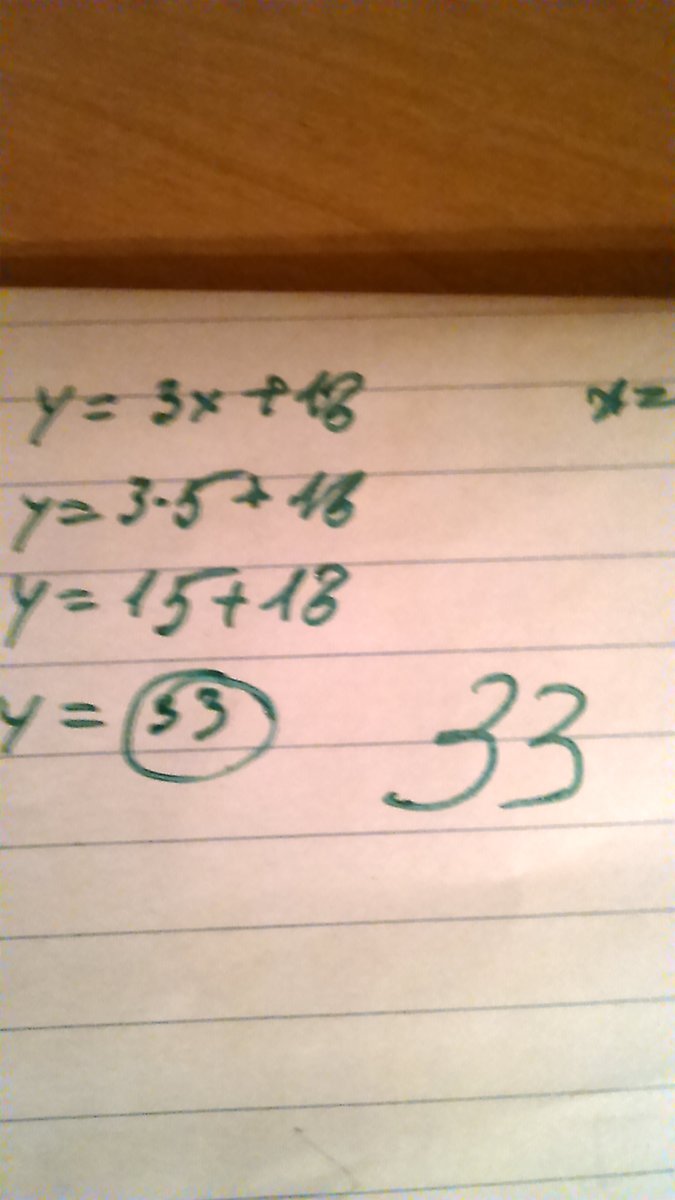 y = 3x + 18 x =
y = 3·5 + 18
y = 15 + 18
y = 33 33